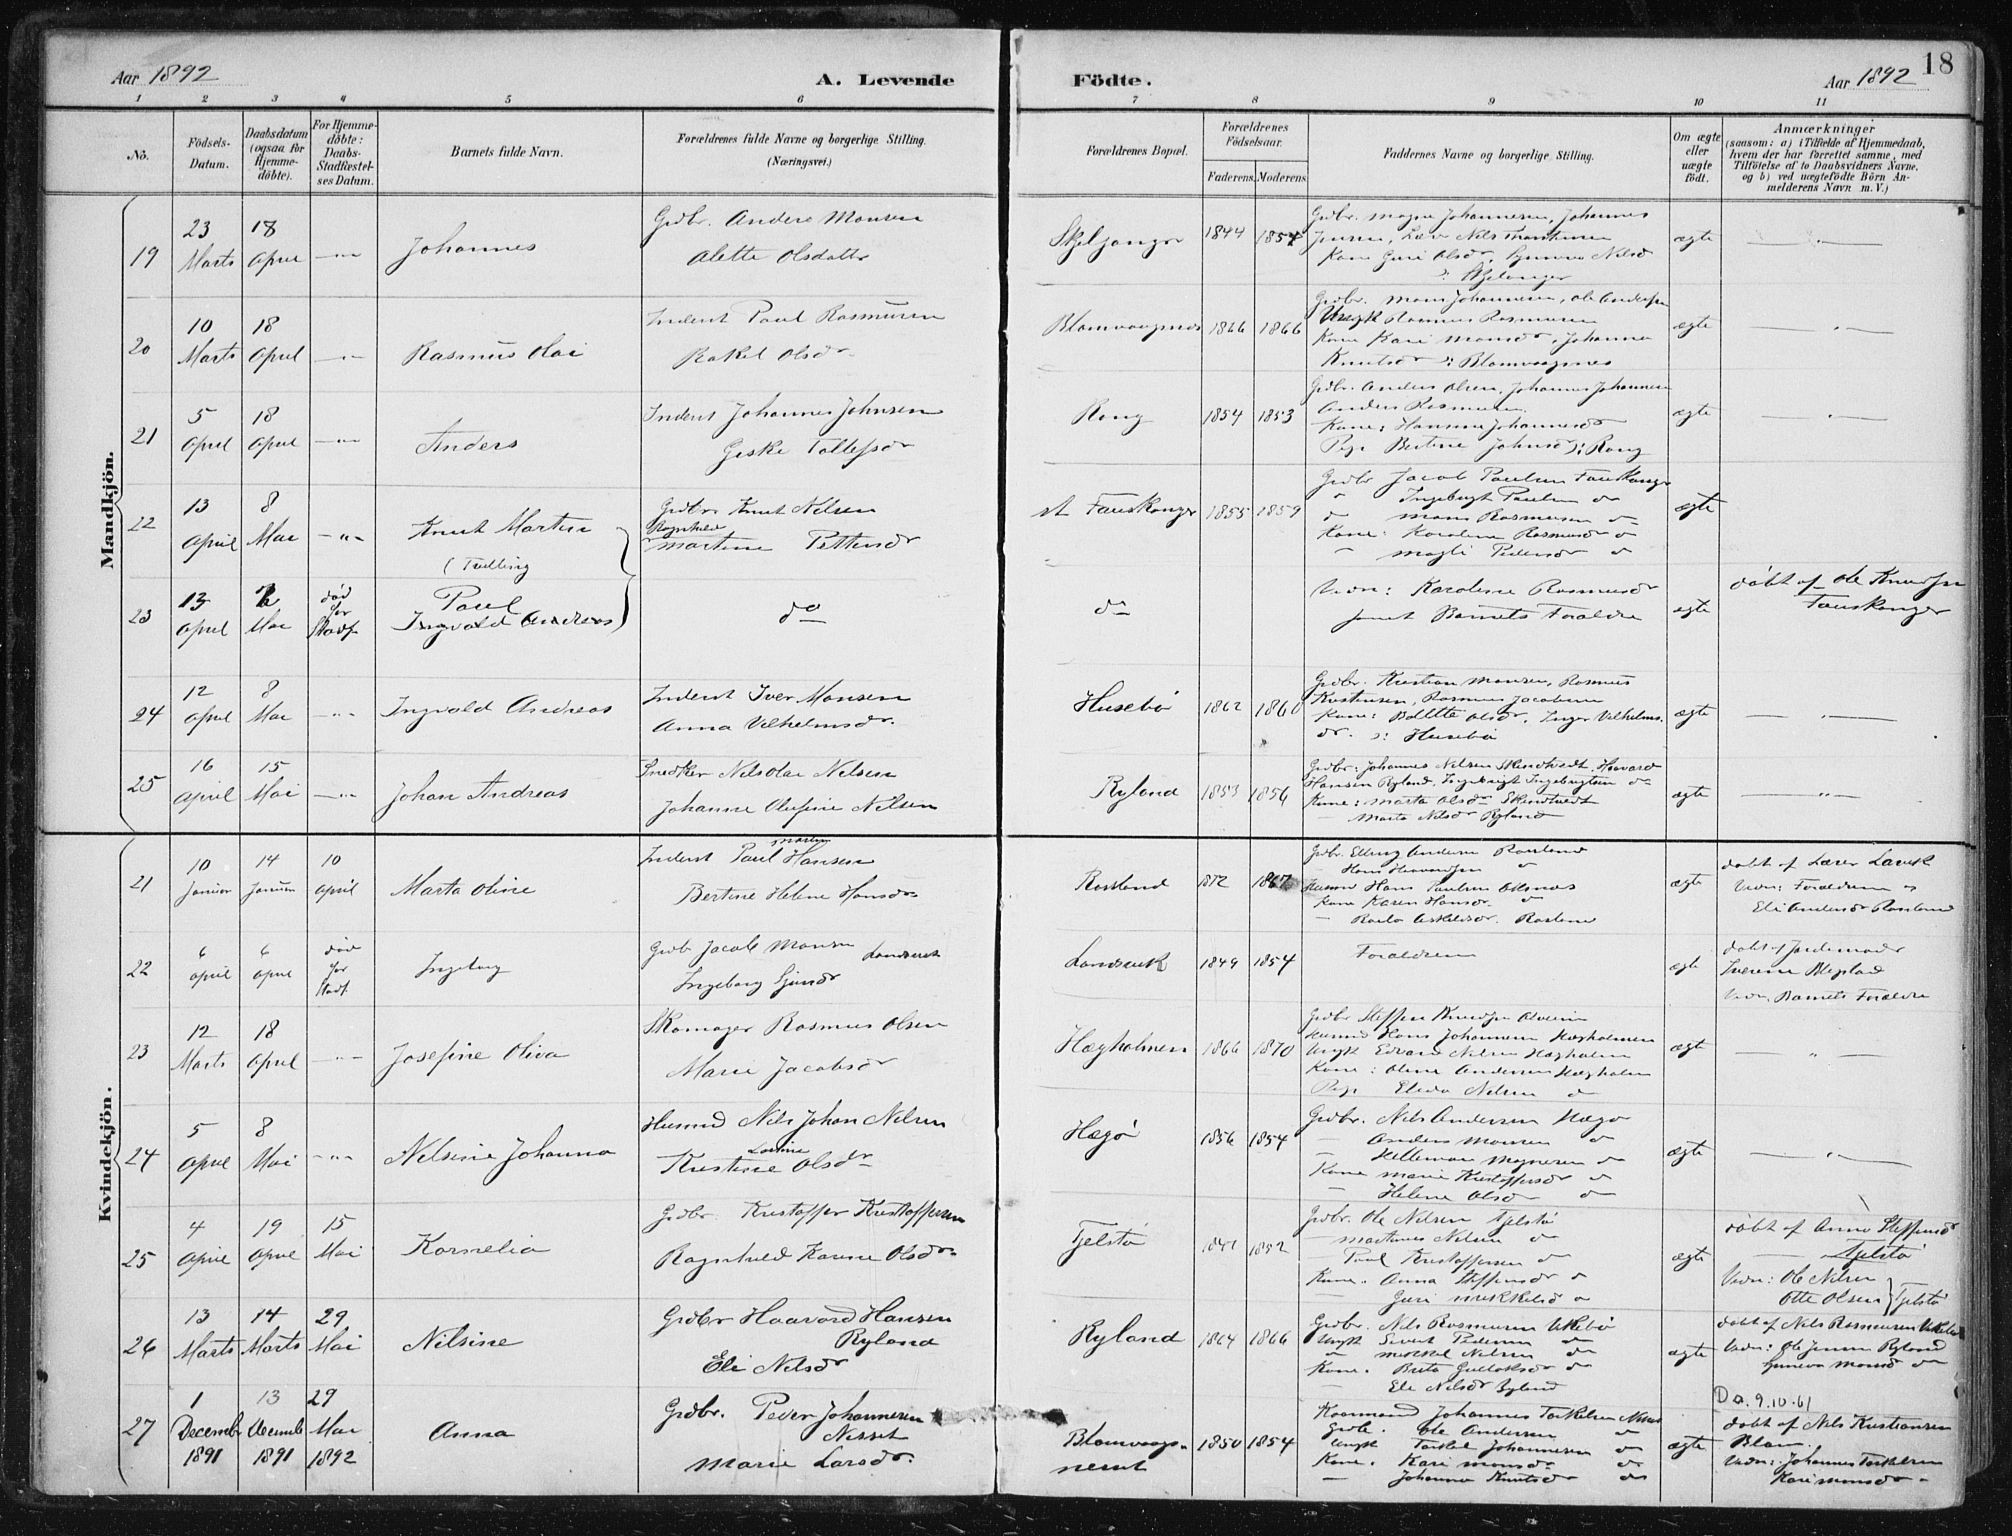 Aar 1892
A. Levende
Födte.
Aar 1892
18
1 2 3 4 5 6 7 8 9 10 11
No.
Födsels-Datum.
Daabsdatum (ogsaa for Hjemme-döbte).
For Hjemme-döbte: Daabs-Stadfæstel-ses Datum.
Barnets fulde Navn.
Forældrenes fulde Navne og borgerlige Stilling. (Næringsvei.)
Forældrenes Bopæl.
Forældrenes Födselsaar.
Faderens. Moderens.
Faddernes Navne og borgerlige Stilling.
Om ægte eller uægte födt.
Anmærkninger
(saasom: a) i Tilfælde af Hjemmedaab, hvem der har forrettet samme, med Tilföielse af to Daabsvidners Navne, og b) ved uægtefödte Börn An-melderens Navn m. V.)
Mandkjön.
19 23 Marts 18 April Johannes
Grdbr. Anders Monsen
Alette Olsdatter
1844 1854
Grdbr. Magne Johannesen, Johannes
ægte
20 10 Marts 18 April Rasmus Olai
Inderst Paul Rasmusen
Rakel Olsdr
Blomvaagnes 1866 1866
Grdbr. Mons Johannesen, Ole Andersen
Ungk Rasmus Rasmusen
Kone Kari Monsdr, Johanna
Knutsdr : Blomvaagnes
ægte
21 5 April 18 April Anders
Inderst Johannes Johnsen
Geske Tollefsdr
Rong 1854 1853
Grdbr. Anders Olsen, Johannes Johannesen
Anders Rasmusen
Kone: Hansine Johannesdr
Pige Bertine Johnsd : Rong
ægte
22 13 April 8 Mai Knut Martin
(Tvilling
Grdbr Knut Nilsen
Ragnhild
Martine Pettersdr
Fauskanger 1855 1859
Grdbr Jacob Paulsen Fauskanger
Ingebrigt Paulsen do
Mons Rasmusen do
Kone: Karoline Rasmusdr do
Magli Pedersdr do
ægte
23 13 April Mai död for Stadf
Paul
Ingvald Andreas
do
do
Vidn: Karoline Rasmusdr
samt Barnets Forældre
ægte
döbt af Ole Knudsen
Fauskanger
24 12 April 8 Mai Ingvald Andreas
Inderst Iver Monsen
Anna Vilhelmsdr.
Husebö 1862 1860
Grdbr. Kristian Monsen, Rasmus
Kristensen, Rasmus Jacobsen
Kone: Bolette Olsdr, Inger Vilhelms
dr. : Husebö
ægte
25 16 April 15 Mai Johan Andreas
Snedker Nilsolai Nilsen
Johanne Olufine Nilsen
Ryland 1853 1856
Grdbr: Johannes Nilsen Skindtvedt, Haavard
Hansen Ryland, Ingebrigt Ingebrigtsen do
Kone: Marta Olsdr Skindtvedt
Marta Nilsdr Ryland
ægte
Kvindekjön.
21 10 Januar 14 Januar 10 April Marta Oline
Inderst Paul Hansen
Bertine Helene Hansdr
Rosland 1872 1867
Grdbr. Elling Andersen Rosland
Kone Karen Hansdr.
ægte
döbt af Lærer
Vidn: Forældrene og
Eli Andersdr Rosland
22 6 April 6 April död for Stadf.
Ingeborg
Grdb Jacob Monsen
Landsvik
Ingeborg Sjursdr
Landsvik 1849 1854
Forældrene
ægte
döbt af Jordemoder
Vidn: Barnets Forældre
23 12 Marts 18 April Josefine Oliva
Skomager Rasmus Olsen
Marie Jacobsdr
Hægholmen 1866 1870
Grdbr Steffen Knudsen
Husmd Hans Johannesen Hægholmen
Ungk Edvard Nilsen Hægholm
Kone: Oline Andersen Hægholm
Pige Nilsen do
ægte
24 5 April 8 Mai Nelsine Johanna
Husmd Nils Johan Nilsen
Kristine Olsdr
Hægö 1856 1854
Grdbr. Nils Andersen Hægö
Anders Monsen do
Magnesen do
Kone Marie Kristoffersdr do
Helene Olsdr do
ægte
25 4 April 19 April 15 Mai Kornelia
Grdbr. Kristoffer Kristoffersen
Ragnhild Karine Olsdr
Tjelstö 1852
Grdbr. Ole Nilsen Tjelstö
Martinus Nilsen do
Paul Kristoffersen do
Kone. Anna Steffensdr do
Guri Mikkelsd do
ægte
döbt af Anna Steffensdr
Tjelstö
Vidn: Ole Nilsen
Otte Olsen } Tjelstö
26 13 Marts 14 Marts 29 Mai Nilsine
Grdbr Haavard Hansen
Ryland
Eli Nilsdr
Ryland 1864 1866
Grdbr. Nils Rasmusen Uskebö
Ungk Sivert Pedersen do
Mikkel Nilsen do
Kone. Brita Gullaksdr do
Eli Nilsdr Ryland
ægte
döbt af Nils Rasmusen Uskebö
Vidn: Ole Jensen Ryland
Monsd do
27 1 December 1891 13 Decemb 1891 29 Mai 1892 Anna
Grdbr. Peder Johannesen
Nesset
Marie Larsdr.
Blomvaagnesset 1850 1854
Johannes Torkelsen
Grdb. Ole Andersen do
Ungk Torkel Johannesen do
Kone. Kari Monsdr do
Johanna Knutsdr do
ægte
Da. 9.10.61
döbt af Nils Kristiansen
Blom.
Vidn: Johannes Torkelsen
Kari Monsdr